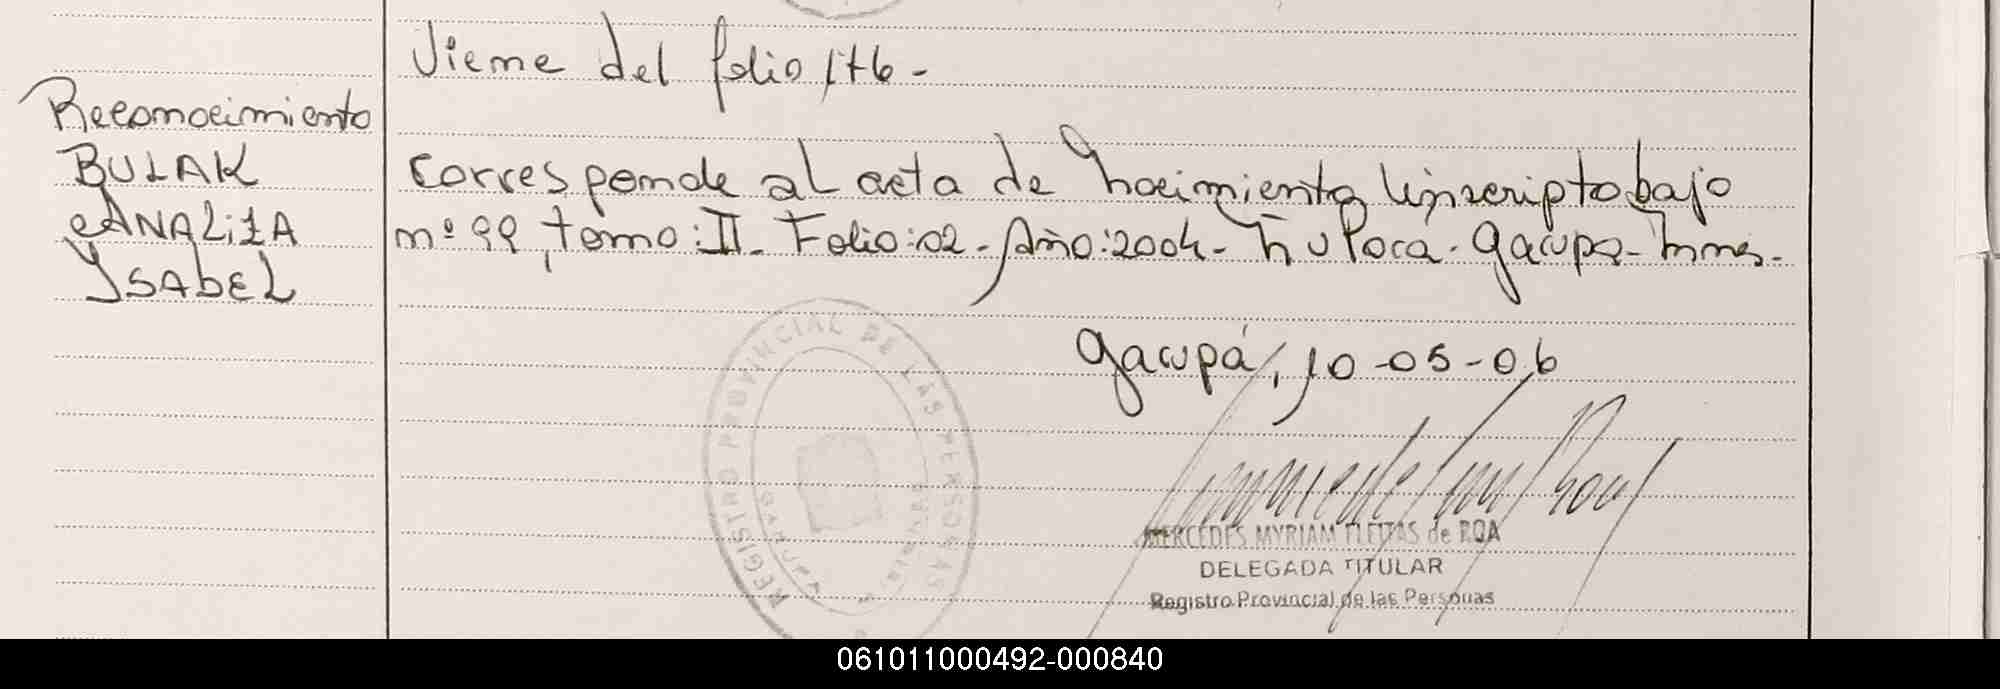 Viene del folio 176-
Reconocimiento
BULAK
ANALiZA
YSABEL
Corresponde al acta de Nacimiento inscripto bajo
nº 99, tomo: II- Folio: 02- Año: 2004- Garupa- Mnes-
Garupá, 10-05-06
REGISTRO PROVINCIAL DE LAS PERSONAS
GARUPA
MERCEDES MYRIAM FLEITAS de ROA
DELEGADA TITULAR
Registro Provincial de las Personas
061011000492-000840